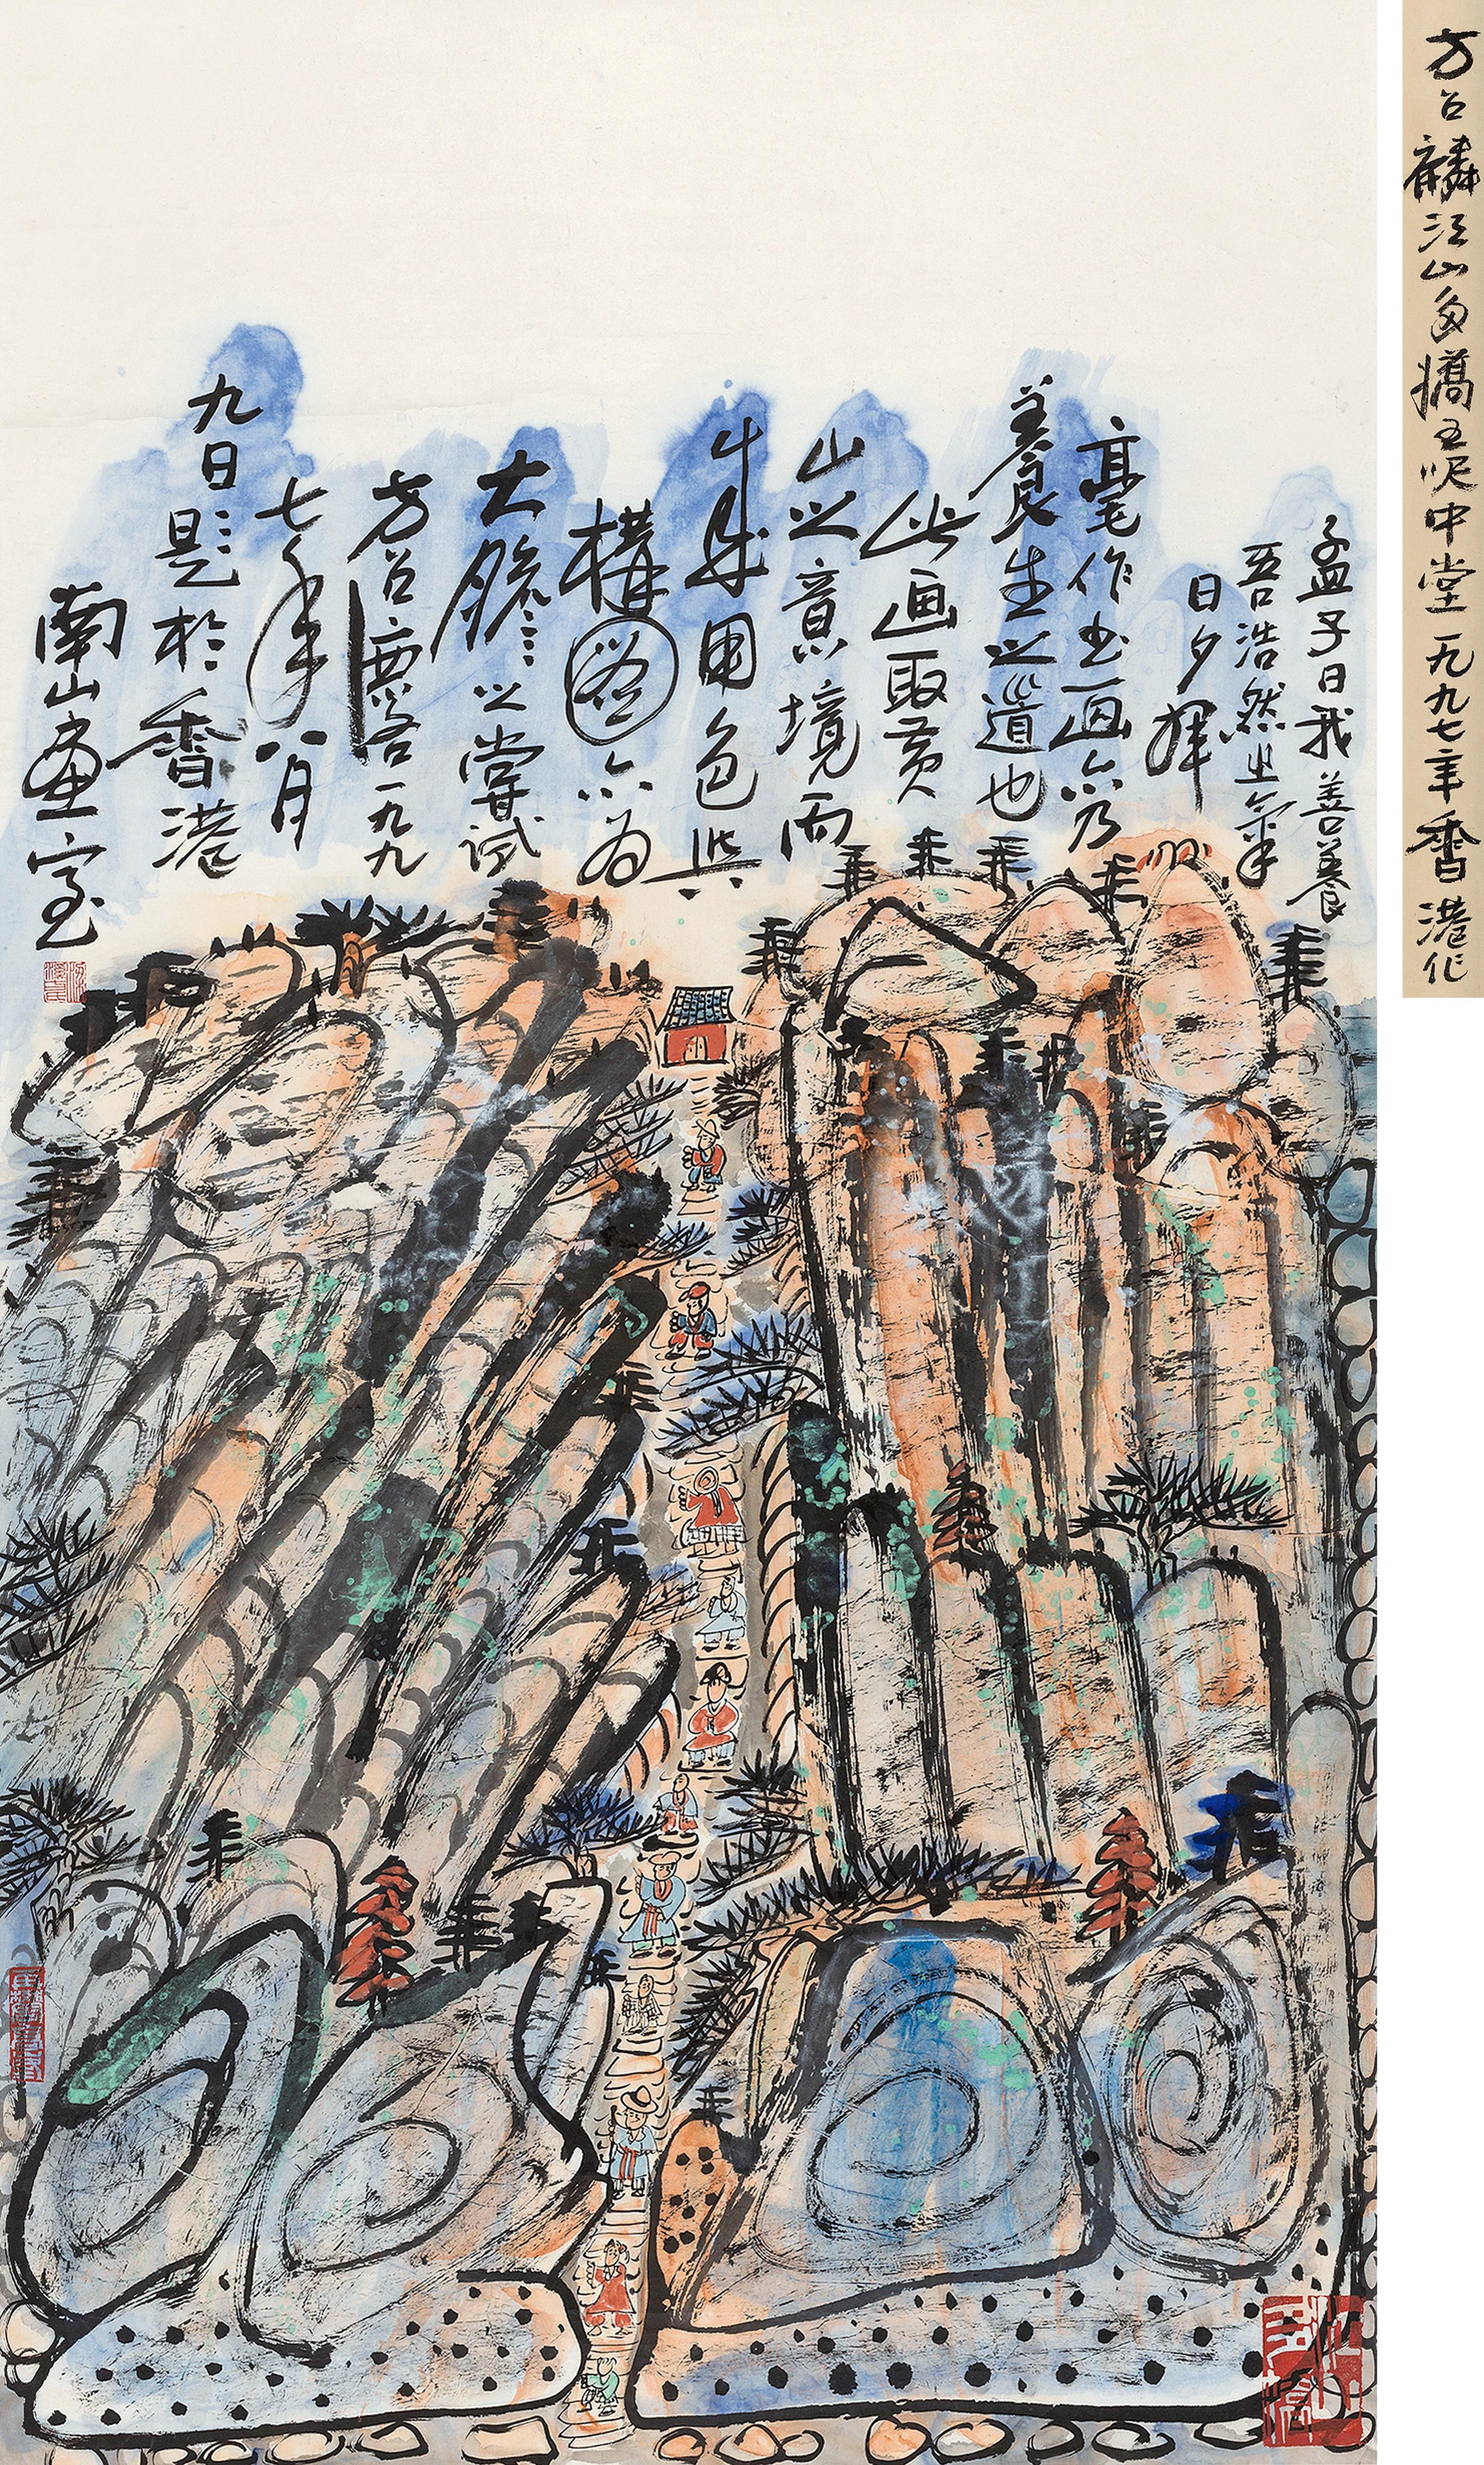 方召麟江山多嬌五呎中堂一九九七年香港作
孟子曰我善養
吾浩然之氣
日夕揮
毫作书画亦乃
養生之道也
此画取黄
山之意境而
用色與
構圖亦为
大膽之嘗試
方召麐一九九
七年八月
九日題於香港
南山畫室
江山多嬌